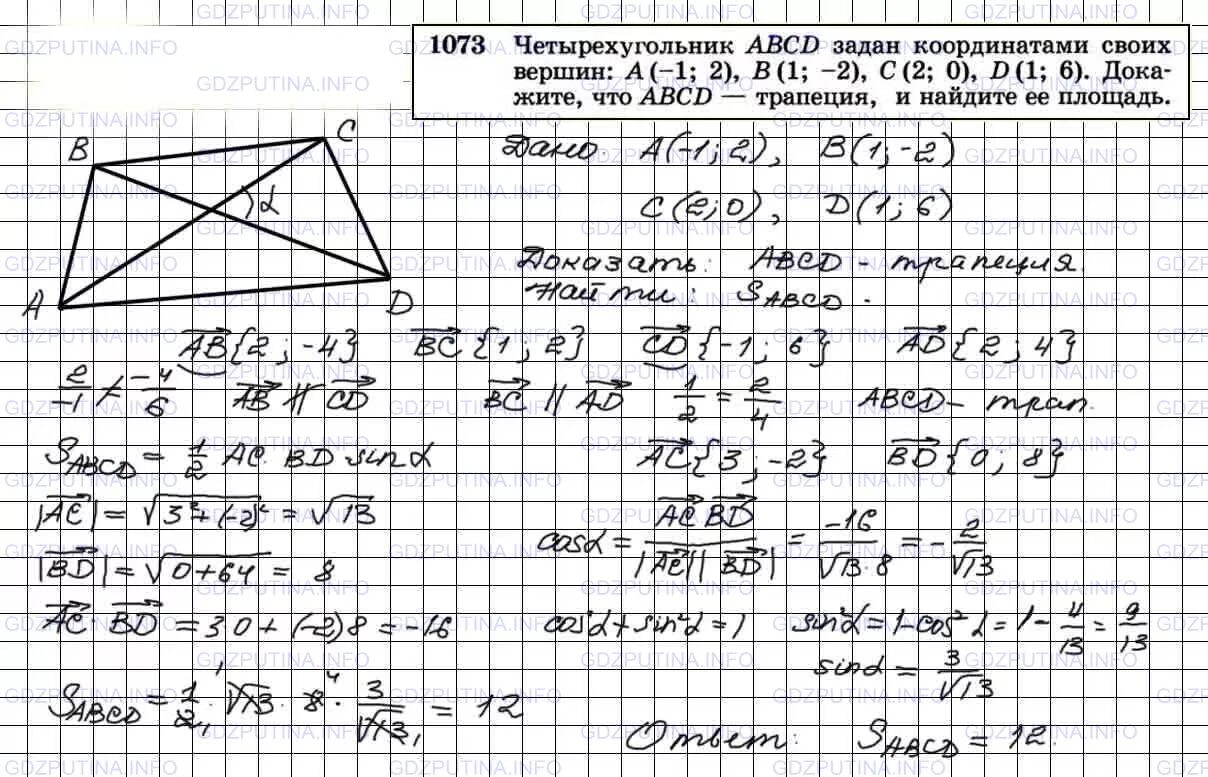 1073 Четырехугольник ABCD задан координатами своих
вершин: A (−1; 2), B (1; −2), C (2; 0), D (1; 6). Дока-
жите, что ABCD — трапеция, и найдите ее площадь.
B C
α
A D
Дано: A(-1; 2), B(1; -2)
C(2; 0), D(1; 6)
Доказать: ABCD - трапеция.
Найти: S_ABCD.
AB{2; -4} BC{1; 2} CD{-1; 6} AD{2; 4}
2/-1 ≠ -4/6 AB ∦ CD BC || AD 1/2 = 2/4 ABCD - трап.
S_ABCD = 1/2 AC · BD sinα AC{3; -2} BD{0; 8}
|AC| = √(3²+(-2)²) = √13
cosα = AC BD / |AC||BD| = -16/(√13·8) = -2/√13
|BD| = √(0+64) = 8
AC · BD = 3·0 + (-2)8 = -16 cos²α + sin²α = 1 sin²α = 1 - cos²α = 1 - 4/13 = 9/13
sinα = 3/√13
S_ABCD = 1/2 · √13 · 8 · 3/√13 = 12
Ответ: S_ABCD = 12.
GDZPUTINA.INFO